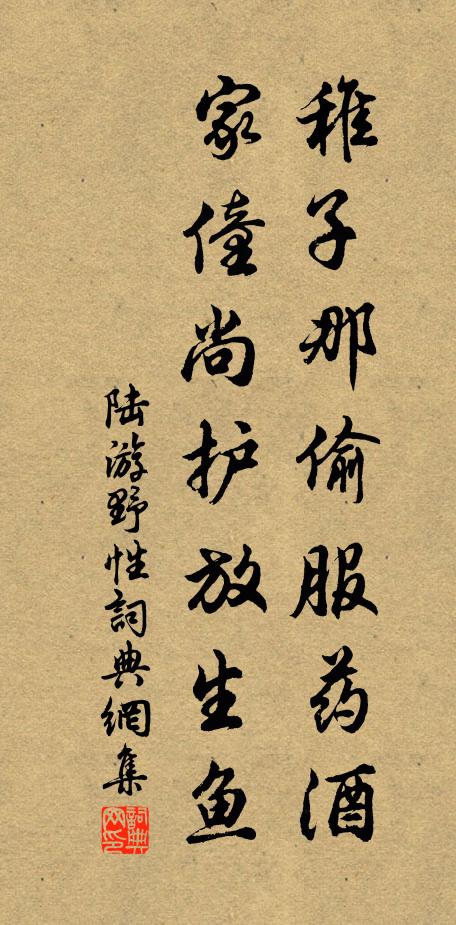 稚子那偷服药酒
家僮尚护放生鱼
陆游野性詞典網集
詞典網印